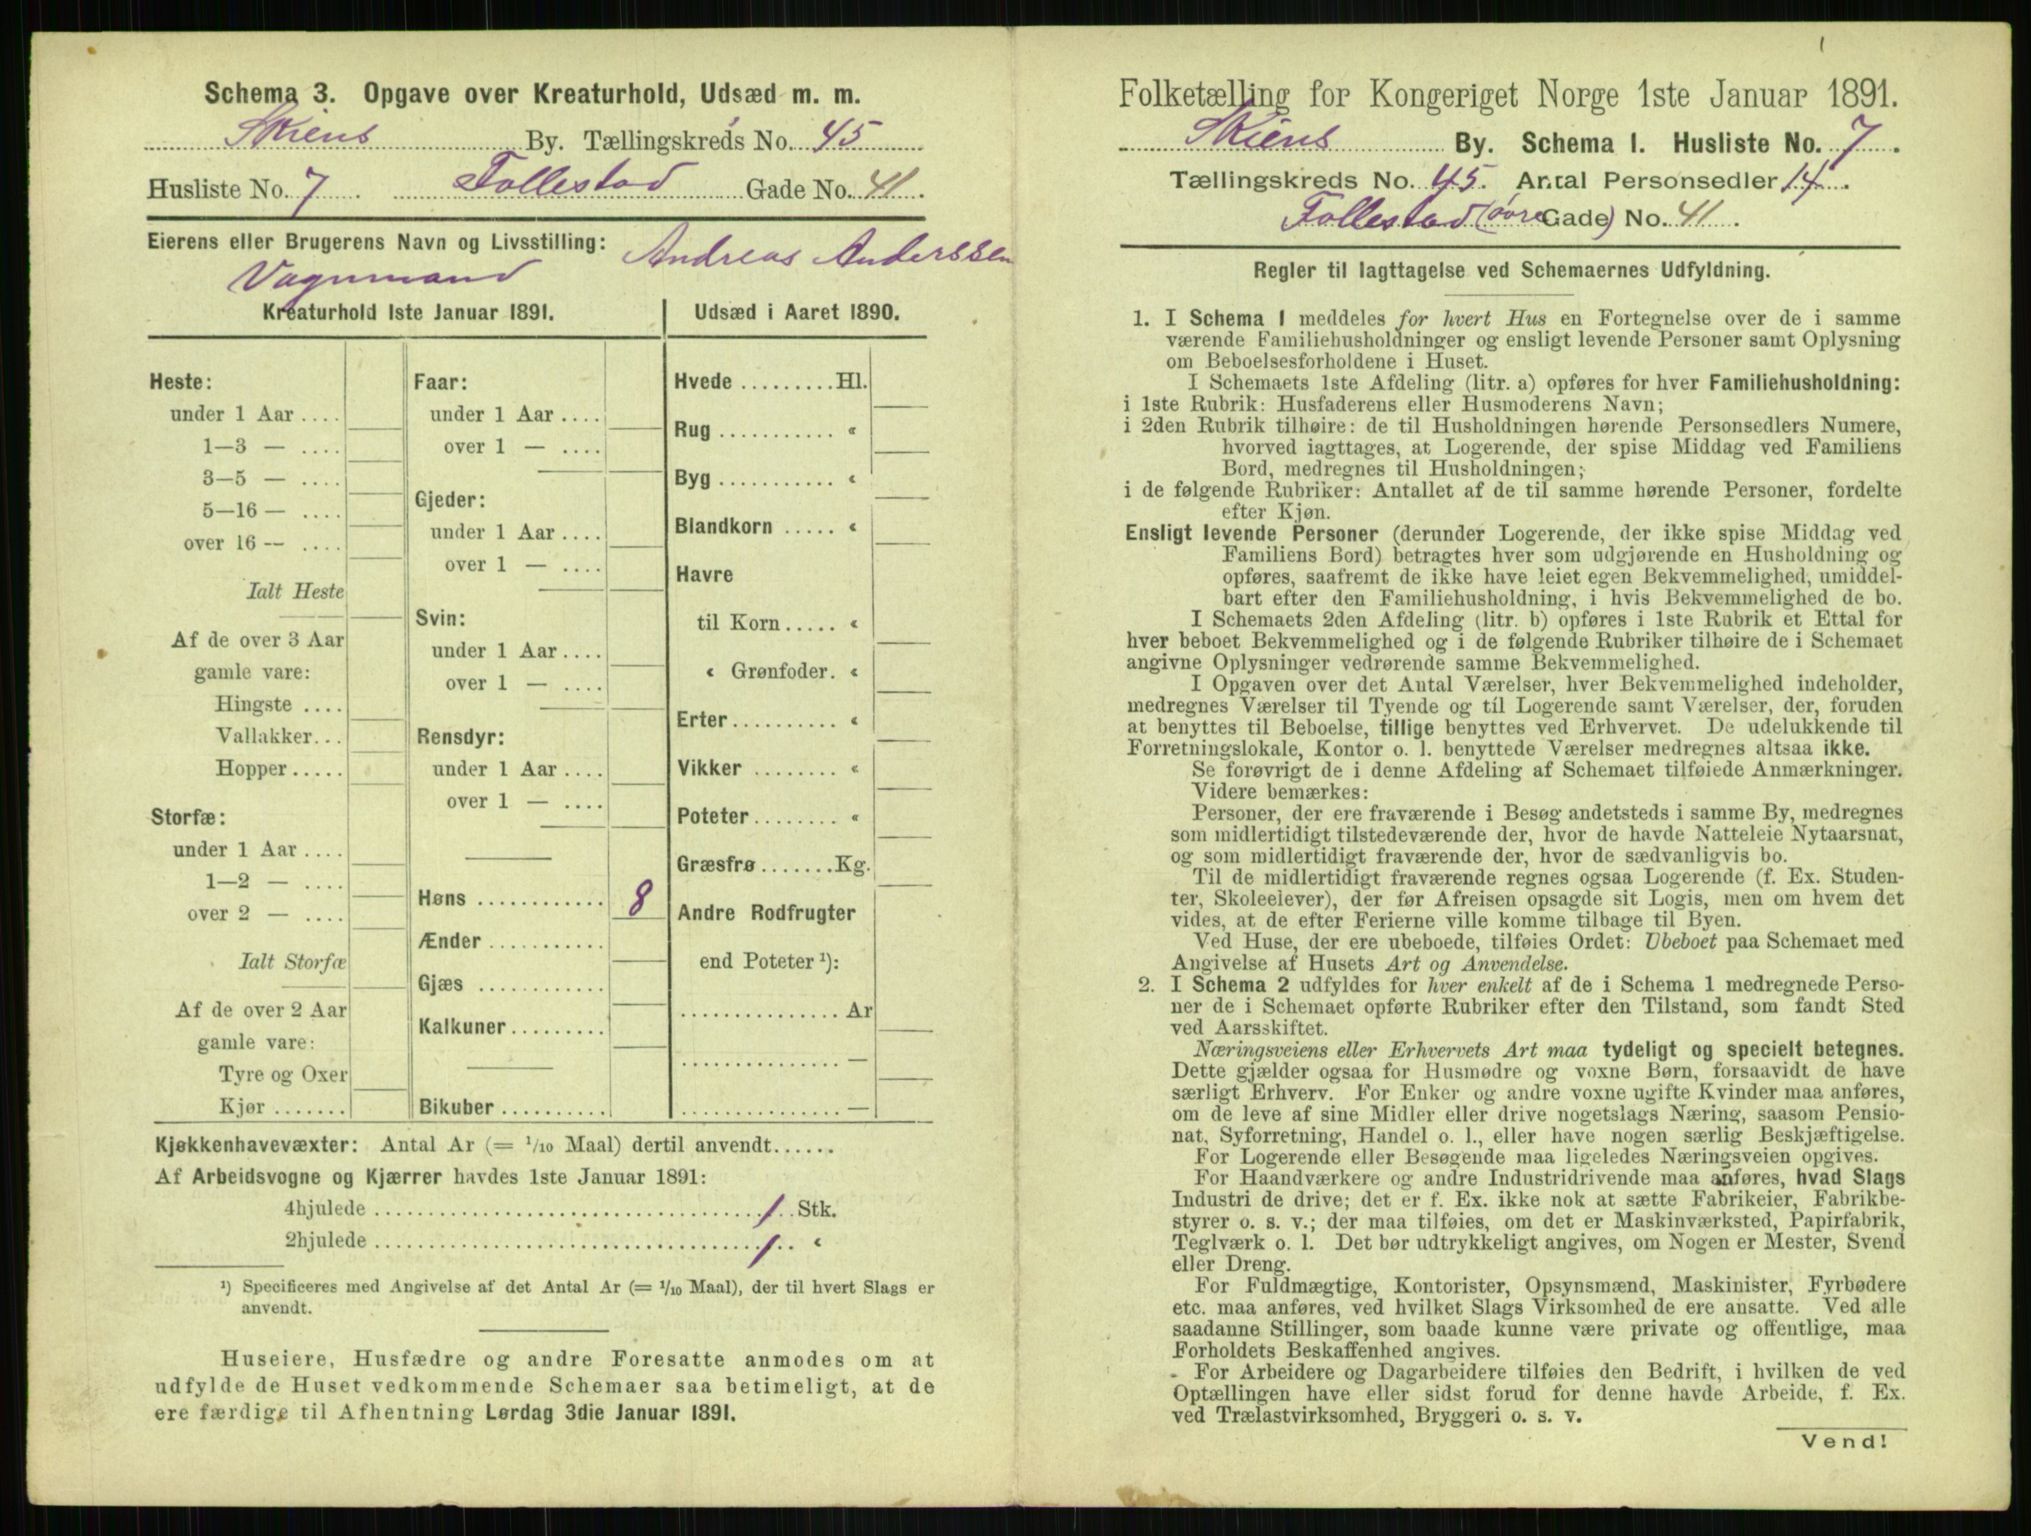 Schema 3. Opgave over Kreaturhold, Udsæd m. m.
Skiens By. Tællingskreds No. 45
Husliste No. 7 Follestad Gade No. 41.
Eierens eller Brugerens Navn og Livsstilling: Andreas Anderssen
Vognmand
Kreaturhold 1ste Januar 1891.
Heste:
under 1 Aar ....
1—3 — ....
3—5 — ....
5—16 — ....
over 16 — ....
Ialt Heste
Af de over 3 Aar
gamle vare:
Hingste ....
Vallakker...
Hopper.....
Storfæ:
under 1 Aar ....
1—2 — ....
over 2 — ....
Ialt Storfæ
Af de over 2 Aar
gamle vare:
Tyre og Oxer
Kjør .......
Faar:
under 1 Aar ....
over 1 — ....
Gjeder:
under 1 Aar ....
over 1 — ....
Svin:
under 1 Aar ....
over 1 — ....
Rensdyr:
under 1 Aar ....
over 1 — ....
Høns ............ 8
Ænder ...........
Gjæs ............
Kalkuner.........
Bikuber ..........
Udsæd i Aaret 1890.
Hvede .........Hl.
Rug ........... «
Byg ........... «
Blandkorn ..... «
Havre
til Korn..... «
« Grønfoder. «
Erter.......... «
Vikker ........ «
Poteter........ «
Græsfrø.......Kg.
Andre Rodfrugter
end Poteter ¹):
............... Ar
............... —
............... —
Kjøkkenhavevæxter: Antal Ar (= 1/10 Maal) dertil anvendt......
Af Arbeidsvogne og Kjærrer havdes 1ste Januar 1891:
4hjulede ........ 1 .. Stk.
2hjulede ........ 1 .. «
¹) Specificeres med Angivelse af det Antal Ar (= 1/10 Maal), der til hvert Slags er
anvendt.
Huseiere, Husfædre og andre Foresatte anmodes om at
udfylde de Huset vedkommende Schemaer saa betimeligt, at de
ere færdige til Afhentning Lørdag 3die Januar 1891.
Folketælling for Kongeriget Norge 1ste Januar 1891.
Skiens By. Schema 1. Husliste No. 7.
Tællingskreds No. 45. Antal Personsedler 14.
Follestad (øvre Gade) No. 41.
Regler til Iagttagelse ved Schemaernes Udfyldning.
1. I Schema 1 meddeles for hvert Hus en Fortegnelse over de i samme
værende Familiehusholdninger og ensligt levende Personer samt Oplysning
om Beboelsesforholdene i Huset.
I Schemaets 1ste Afdeling (litr. a) opføres for hver Familiehusholdning:
i 1ste Rubrik: Husfaderens eller Husmoderens Navn;
i 2den Rubrik tilhøire: de til Husholdningen hørende Personsedlers Numere,
hvorved iagttages, at Logerende, der spise Middag ved Familiens
Bord, medregnes til Husholdningen;
i de følgende Rubriker: Antallet af de til samme hørende Personer, fordelte
efter Kjøn.
Ensligt levende Personer (derunder Logerende, der ikke spise Middag ved
Familiens Bord) betragtes hver som udgjørende en Husholdning og
opføres, saafremt de ikke have leiet egen Bekvemmelighed, umiddel-
bart efter den Familiehusholdning, i hvis Bekvemmelighed de bo.
I Schemaets 2den Afdeling (litr. b) opføres i 1ste Rubrik et Ettal for
hver beboet Bekvemmelighed og i de følgende Rubriker tilhøire de i Schemaet
angivne Oplysninger vedrørende samme Bekvemmelighed.
I Opgaven over det Antal Værelser, hver Bekvemmelighed indeholder,
medregnes Værelser til Tyende og til Logerende samt Værelser, der, foruden
at benyttes til Beboelse, tillige benyttes ved Erhvervet. De udelukkende til
Forretningslokale, Kontor o. l. benyttede Værelser medregnes altsaa ikke.
Se forøvrigt de i denne Afdeling af Schemaet tilføiede Anmærkninger.
Videre bemærkes:
Personer, der ere fraværende i Besøg andetsteds i samme By, medregnes
som midlertidigt tilstedeværende der, hvor de havde Natteleie Nytaarsnat,
og som midlertidigt fraværende der, hvor de sædvanligvis bo.
Til de midlertidigt fraværende regnes ogsaa Logerende (f. Ex. Studen-
ter, Skoleelever), der før Afreisen opsagde sit Logis, men om hvem det
vides, at de efter Ferierne ville komme tilbage til Byen.
Ved Huse, der ere ubeboede, tilføies Ordet: Ubeboet paa Schemaet med
Angivelse af Husets Art og Anvendelse.
2. I Schema 2 udfyldes for hver enkelt af de i Schema 1 medregnede Perso-
ner de i Schemaet opførte Rubriker efter den Tilstand, som fandt Sted
ved Aarsskiftet.
Næringsveiens eller Erhvervets Art maa tydeligt og specielt betegnes.
Dette gjælder ogsaa for Husmødre og voxne Børn, forsaavidt de have
særligt Erhverv. For Enker og andre voxne ugifte Kvinder maa anføres,
om de leve af sine Midler eller drive nogetslags Næring, saasom Pensio-
nat, Syforretning, Handel o. l., eller have nogen særlig Beskjæftigelse.
For Logerende eller Besøgende maa ligeledes Næringsveien opgives.
For Haandværkere og andre Industridrivende maa anføres, hvad Slags
Industri de drive; det er f. Ex. ikke nok at sætte Fabrikeier, Fabrikbe-
styrer o. s. v.; der maa tilføies, om det er Maskinværksted, Papirfabrik,
Teglværk o. l. Det bør udtrykkeligt angives, om Nogen er Mester, Svend
eller Dreng.
For Fuldmægtige, Kontorister, Opsynsmænd, Maskinister, Fyrbødere
etc. maa anføres, ved hvilket Slags Virksomhed de ere ansatte. Ved alle
saadanne Stillinger, som baade kunne være private og offentlige, maa
Forholdets Beskaffenhed angives.
For Arbeidere og Dagarbeidere tilføies den Bedrift, i hvilken de ved
Optællingen have eller sidst forud for denne havde Arbeide, f. Ex.
ved Trælastvirksomhed, Bryggeri o. s. v.
Vend!